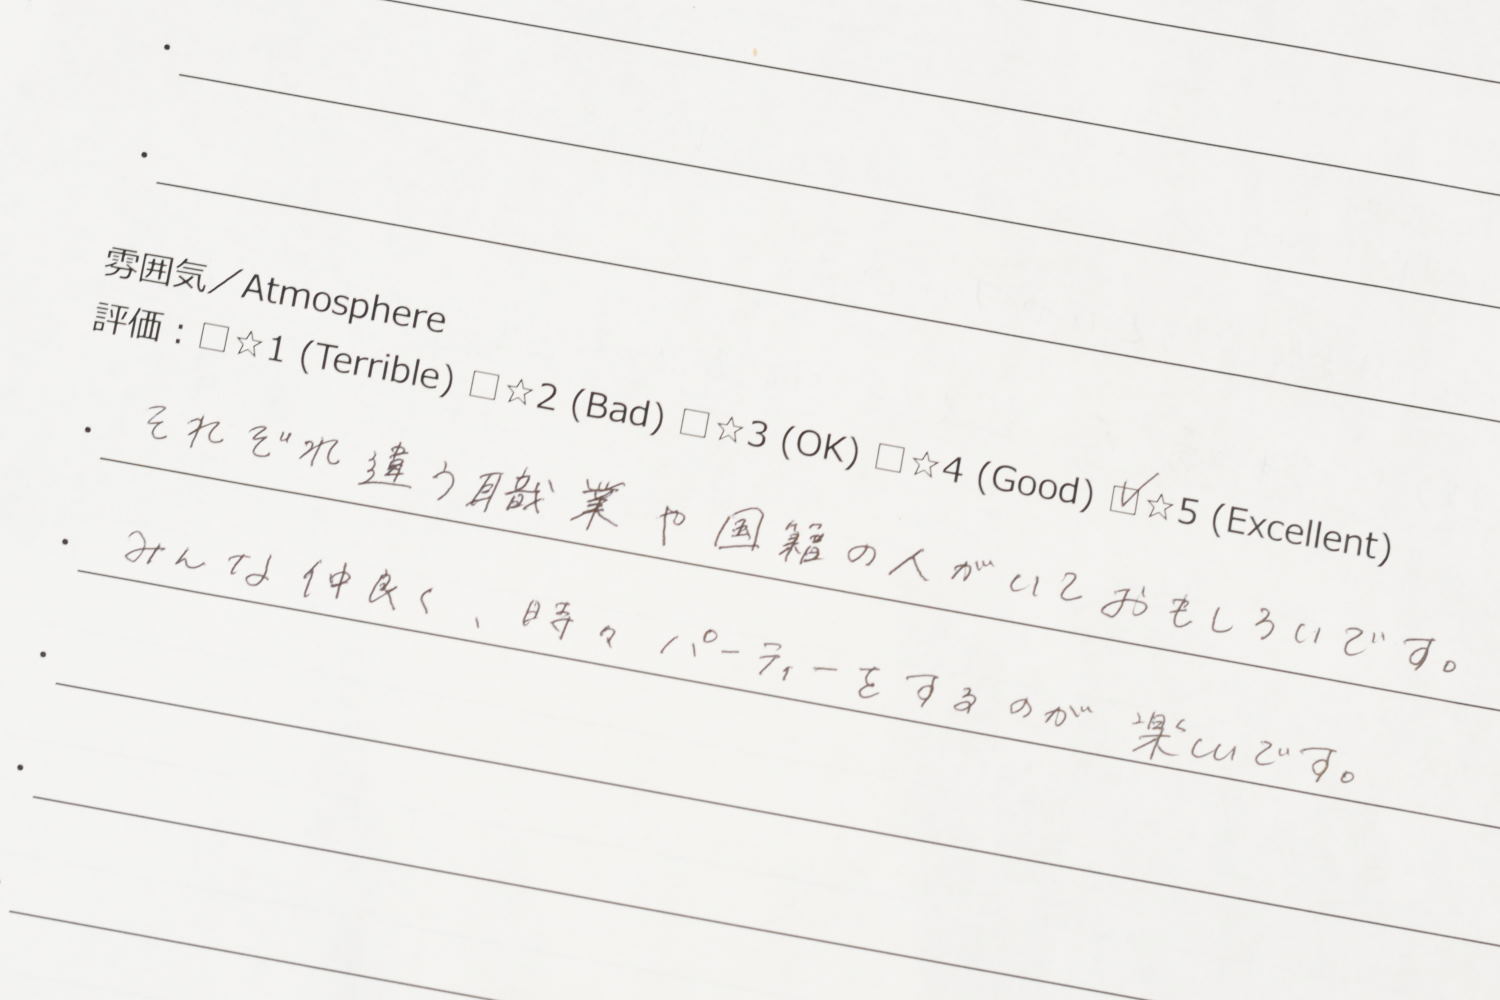 雰囲気／Atmosphere
評価：□☆1 (Terrible) □☆2 (Bad) □☆3 (OK) □☆4 (Good) ☑☆5 (Excellent)
・それぞれ違う職業や国籍の人がいておもしろいです。
・みんな仲良く、時々パーティーをするのが楽しいです。